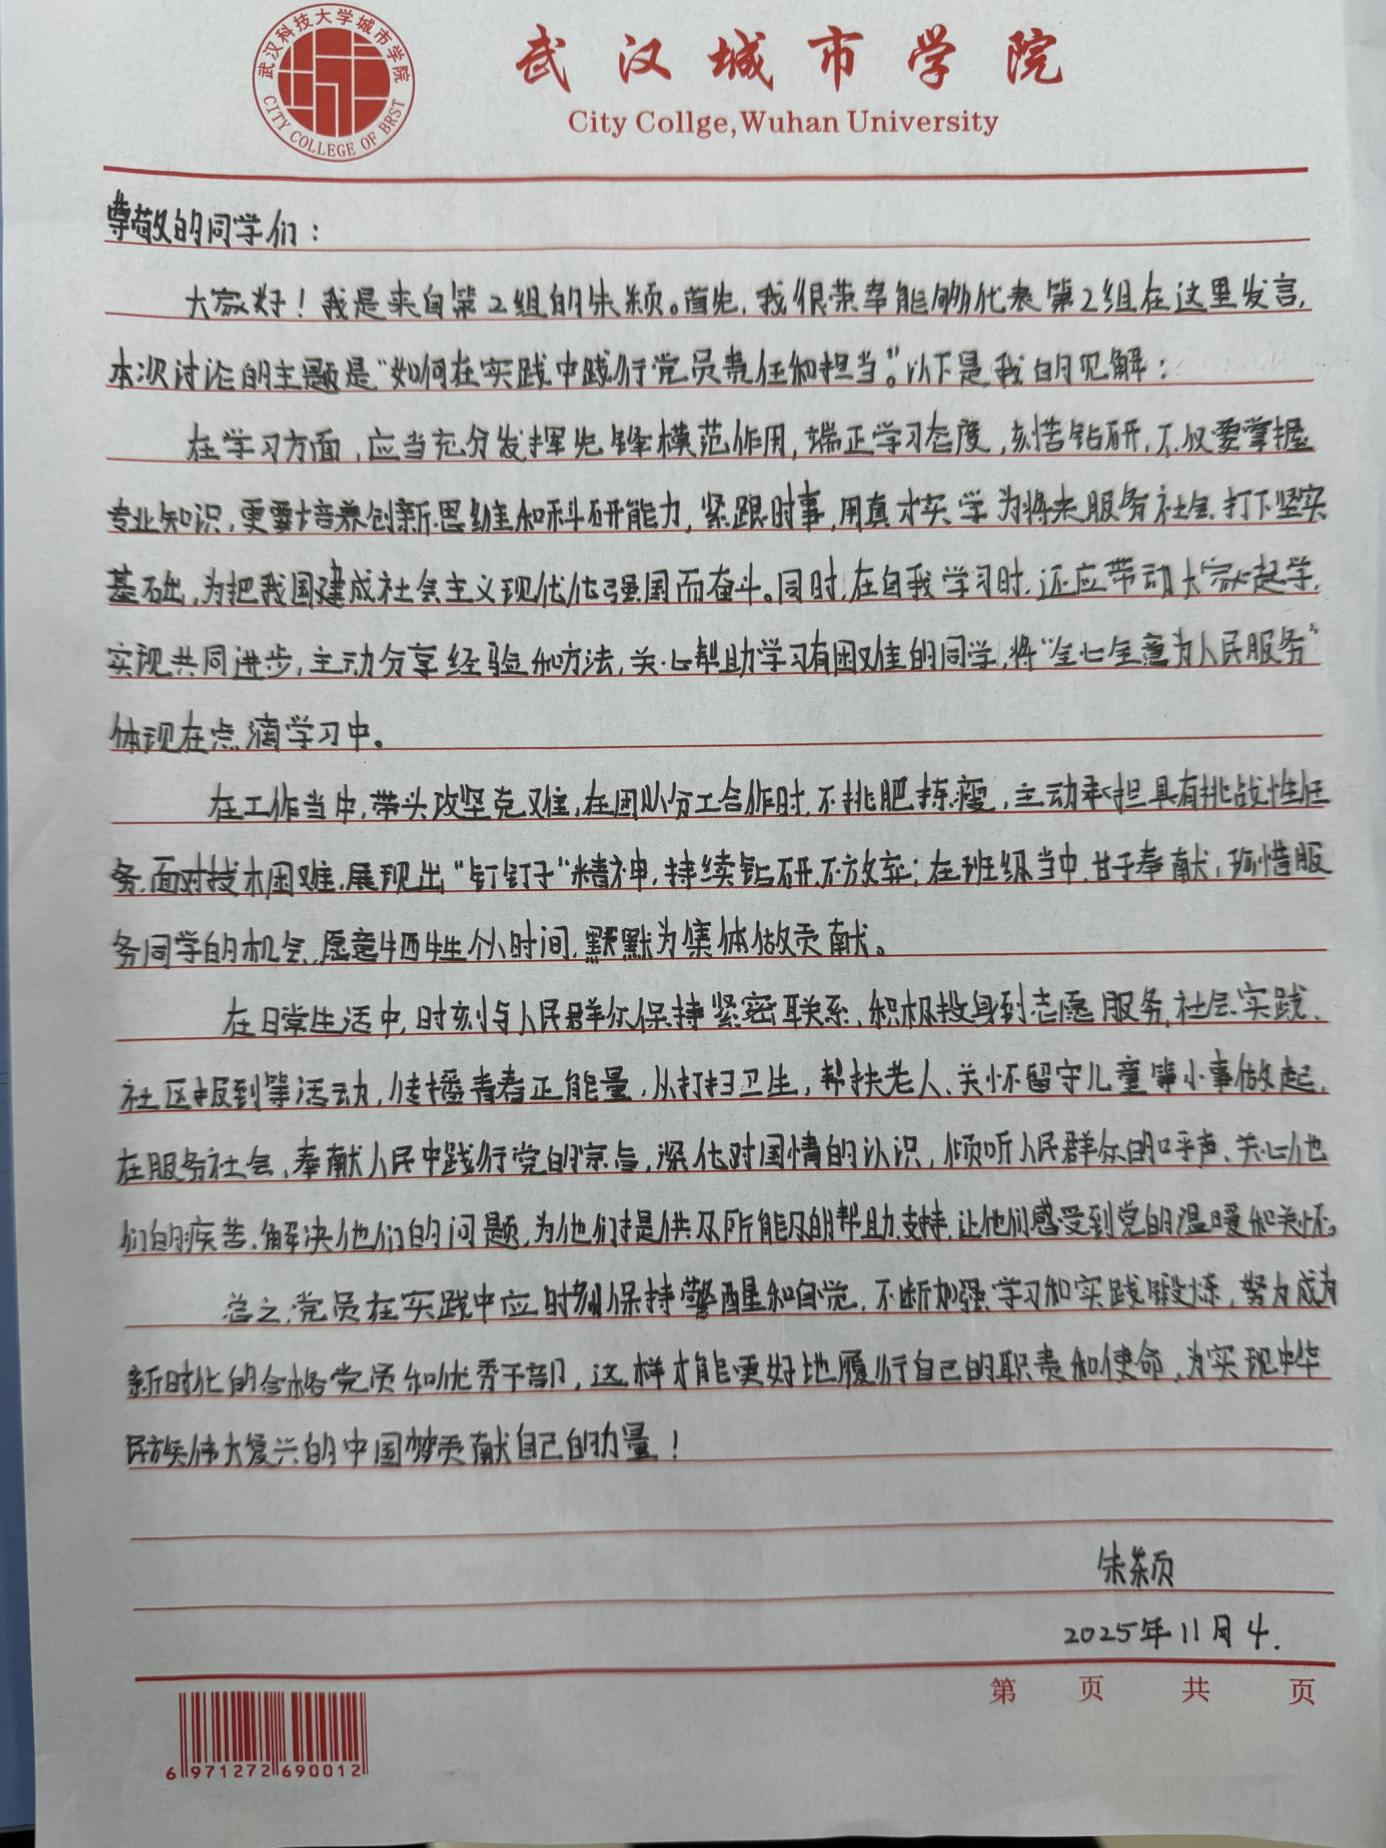 武汉科技大学城市学院
CITY COLLEGE OF BRST
武汉城市学院
City Collge,Wuhan University
尊敬的同学们：
大家好！我是来自第2组的朱颖。首先，我很荣幸能够代表第2组在这里发言，
本次讨论的主题是“如何在实践中践行党员责任和担当”。以下是我的见解：
在学习方面，应当充分发挥先锋模范作用，端正学习态度，刻苦钻研，不仅要掌握
专业知识，更要培养创新思维和科研能力，紧跟时事，用真才实学为将来服务社会打下坚实
基础，为把我国建成社会主义现代化强国而奋斗。同时，在自我学习时，还应带动大家一起学，
实现共同进步，主动分享经验和方法，关心帮助学习有困难的同学，将“全心全意为人民服务”
体现在点滴学习中。
在工作当中，带头攻坚克难，在团队分工合作时，不挑肥拣瘦，主动承担具有挑战性任
务，面对技术困难，展现出“钉钉子”精神，持续钻研，不放弃；在班级当中，甘于奉献，珍惜服
务同学的机会，愿意牺牲个人时间，默默为集体做贡献。
在日常生活中，时刻与人民群众保持紧密联系，积极投身到志愿服务、社会实践、
社区报到等活动，传播青春正能量，从打扫卫生，帮扶老人、关怀留守儿童等小事做起，
在服务社会、奉献人民中践行党的宗旨，深化对国情的认识，倾听人民群众的呼声、关心他
们的疾苦、解决他们的问题，为他们提供力所能及的帮助支持，让他们感受到党的温暖和关怀。
总之，党员在实践中应时刻保持警醒和自觉，不断加强学习和实践锻炼，努力成为
新时代的合格党员和优秀干部，这样才能更好地履行自己的职责和使命，为实现中华
民族伟大复兴的中国梦贡献自己的力量！
朱颖
2025年11月4.
第 页 共 页
6 971272 690012